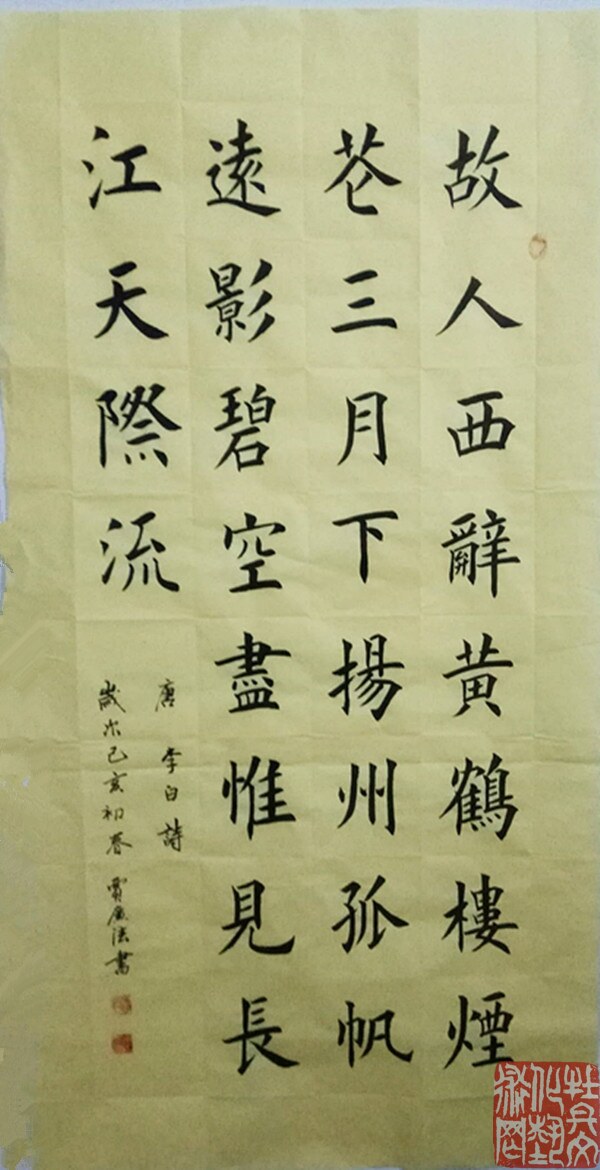 故人西辭黃鶴樓煙
花三月下揚州孤帆
遠影碧空盡惟見長
江天際流
唐 李白詩
歲次己亥初春 賈法書